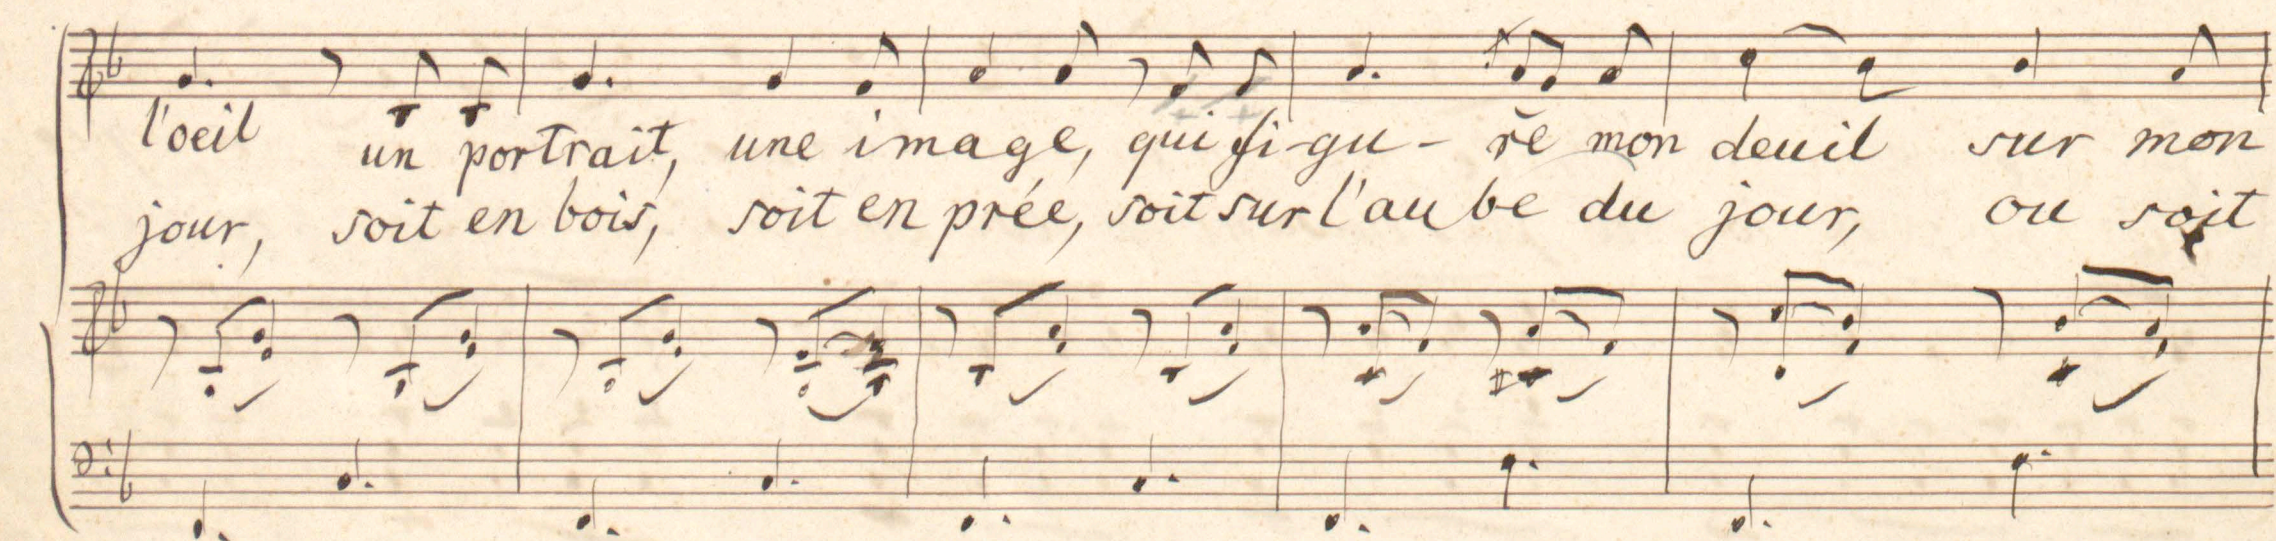 l'oeil un portrait, une image, qui fi-gu-re mon deuil sur mon
jour, soit en bois, soit en prée, soit sur l'au be du jour, ou soit